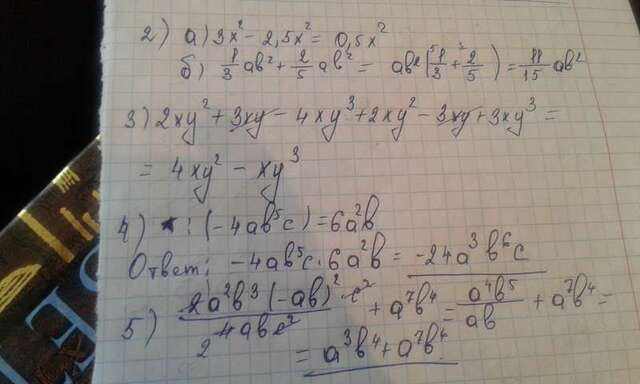 2) а) 3x² - 2,5x² = 0,5x²
б) 1/3 ab² + 2/5 ab² = ab²(1/3 + 2/5) = 11/15 ab²
3) 2xy² + 3xy - 4xy³ + 2xy² - 3xy + 3xy³ =
= 4xy² - xy³
4) * : (-4ab⁵c) = 6a²b
Ответ: -4ab⁵c · 6a²b = -24a³b⁶c
5) 2a²b³(-ab)²·c² / 4abc² + a⁷b⁴ = a⁴b⁵ / ab + a⁷b⁴ =
2
= a³b⁴ + a⁷b⁴